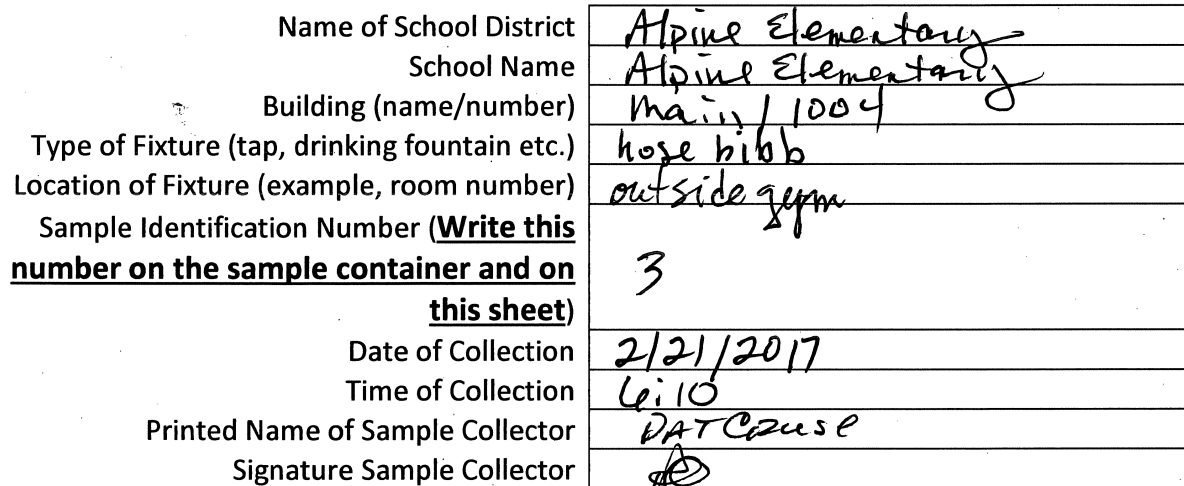 Name of School District Alpine Elementary
School Name Alpine Elementary
Building (name/number) Main / 1004
Type of Fixture (tap, drinking fountain etc.) hose bibb
Location of Fixture (example, room number) outside gym
Sample Identification Number (Write this
number on the sample container and on
this sheet) 3
Date of Collection 2/21/2017
Time of Collection 6:10
Printed Name of Sample Collector
Signature Sample Collector